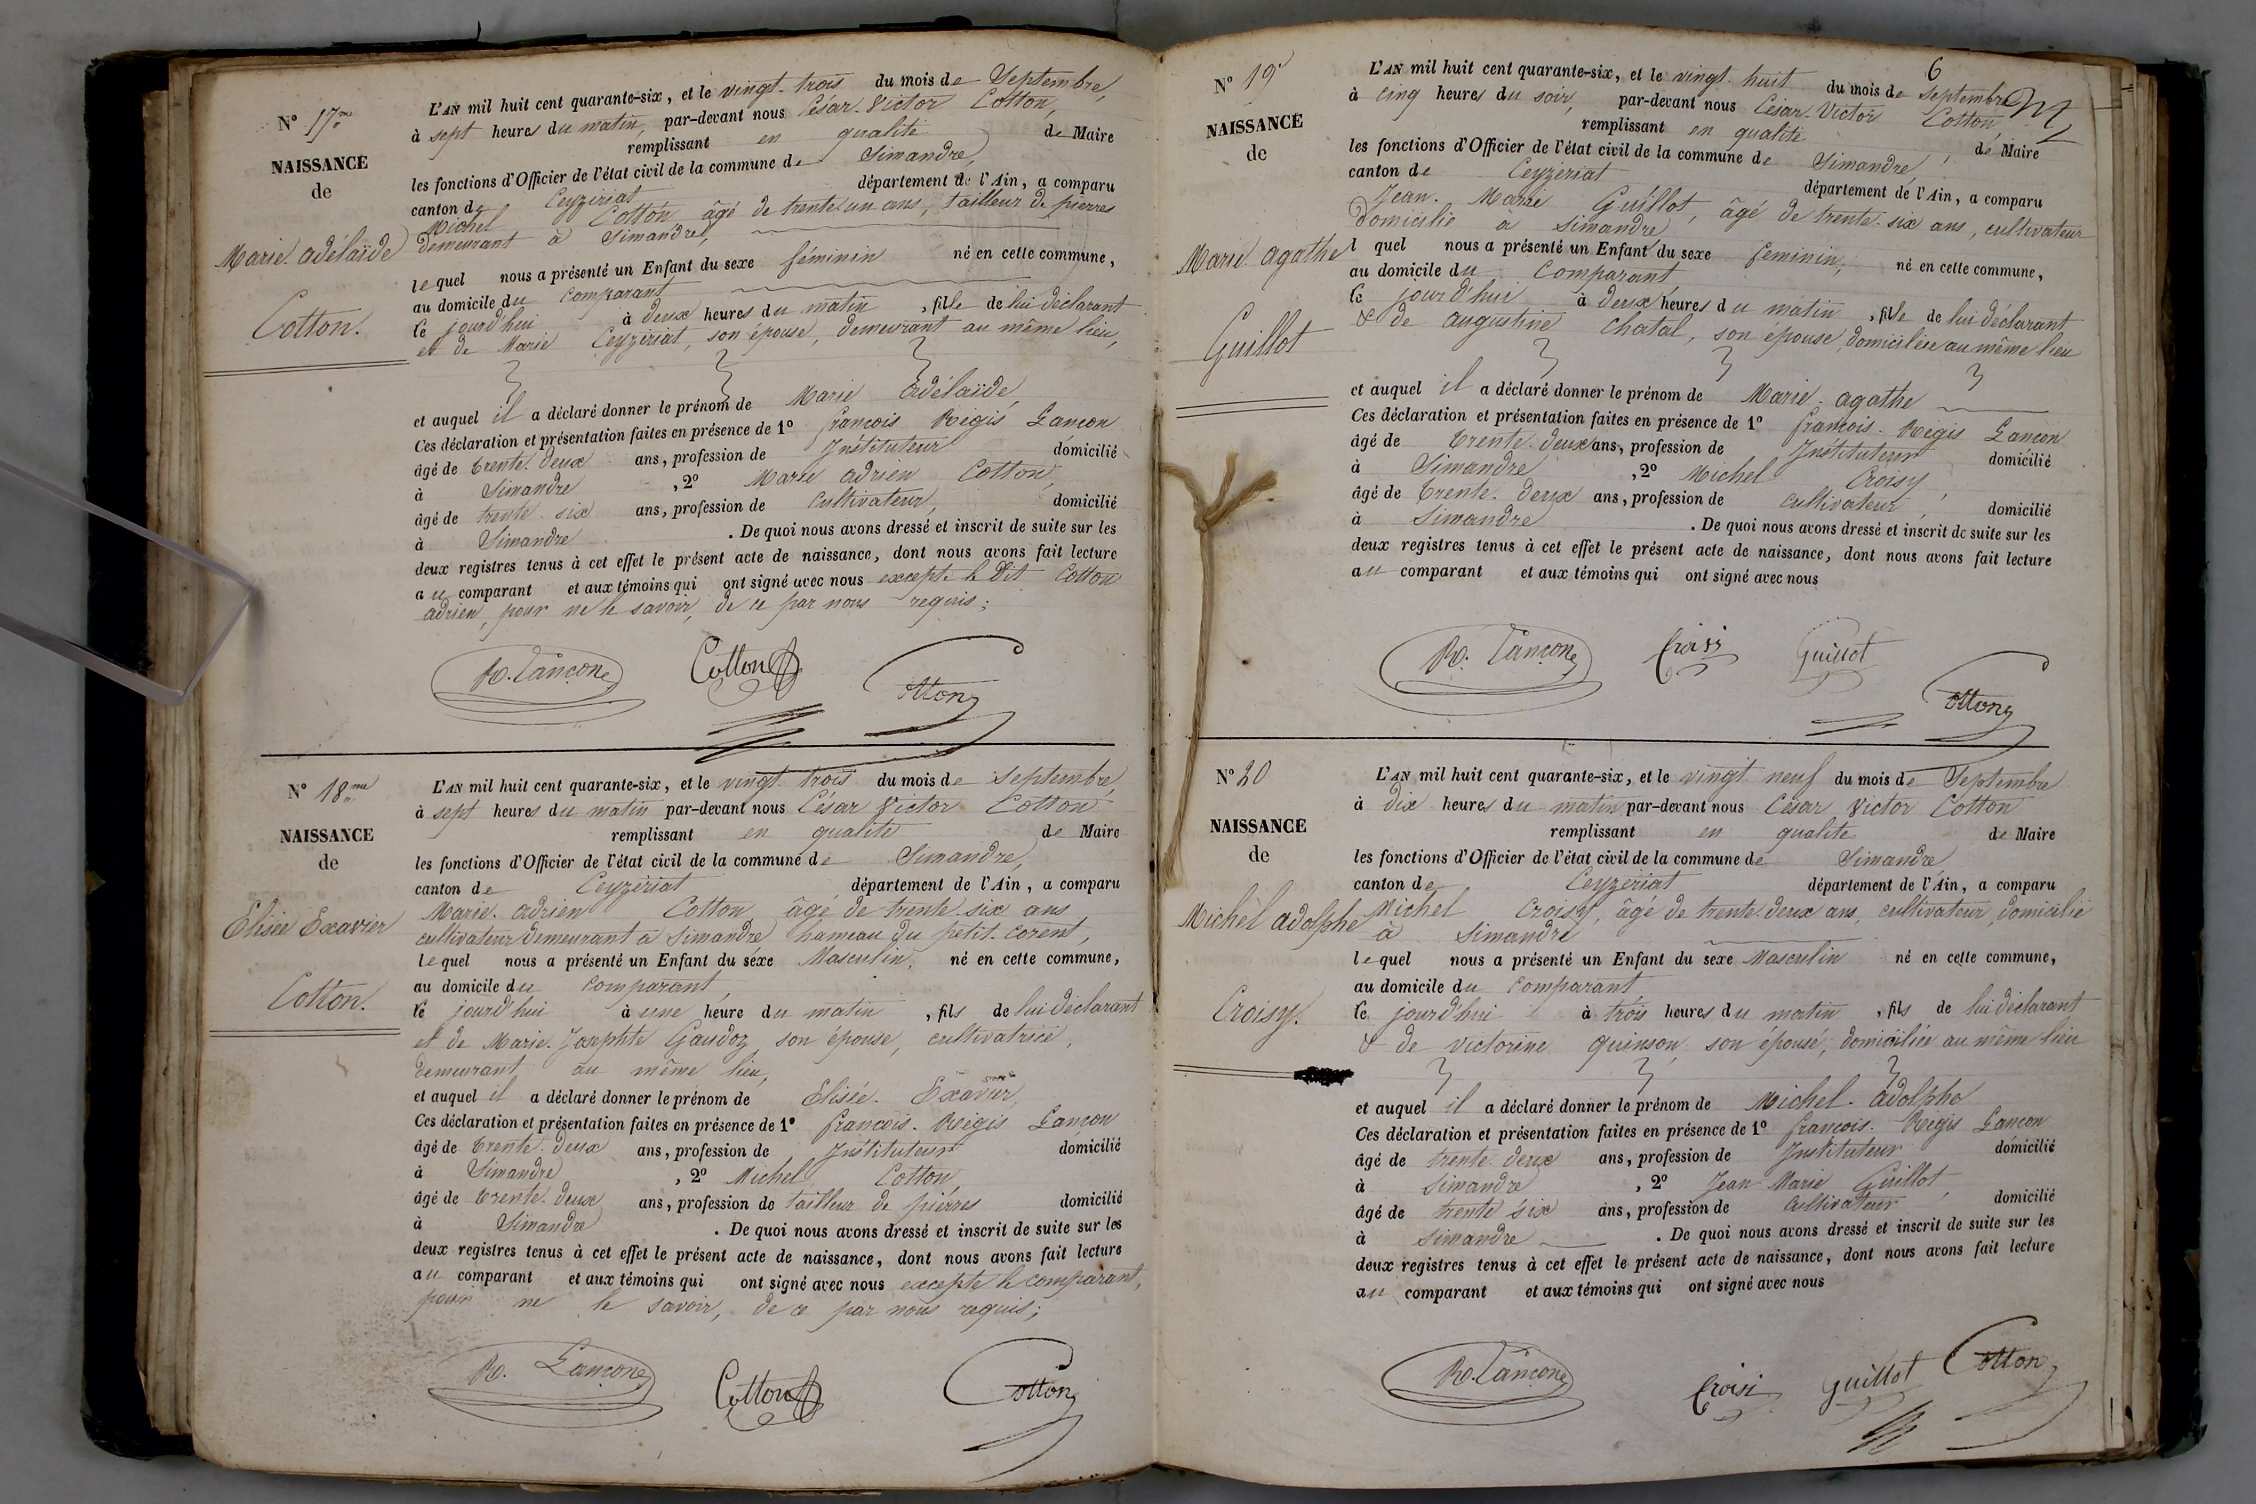 N° 17me
NAISSANCE
de
Marie adélaïde
Cotton.
L'AN mil huit cent quarante-six, et le vingt-trois du mois de Septembre,
à sept heures du matin, par-devant nous César-Victor Cotton,
remplissant en qualité de Maire
les fonctions d'Officier de l'état civil de la commune de Simandre,
canton de Ceyzériat département de l'Ain, a comparu
Michel Cotton âgé de trente un ans, tailleur de pierres
demeurant à Simandre,
lequel nous a présenté un Enfant du sexe féminin né en cette commune,
au domicile du comparant
le jourd'hui à deux heures du matin, fille de lui déclarant
et de Marie Ceyzériat, son épouse, demeurant au même lieu,
et auquel il a déclaré donner le prénom de Marie adélaïde,
Ces déclaration et présentation faites en présence de 1° françois Régis Lançon
âgé de trente-deux ans, profession de Instituteur domicilié
à Simandre, 2° Marie adrien Cotton,
âgé de trente-six ans, profession de cultivateur, domicilié
à Simandre. De quoi nous avons dressé et inscrit de suite sur les
deux registres tenus à cet effet le présent acte de naissance, dont nous avons fait lecture
au comparant et aux témoins qui ont signé avec nous excepté le dit Cotton
adrien, pour ne le savoir, de ce par nous requis;
R. Lançon Cotton Cotton
N° 18me
NAISSANCE
de
Elisée Exavier
Cotton.
L'AN mil huit cent quarante-six, et le vingt-trois du mois de septembre,
à sept heures du matin par-devant nous César Victor Cotton
remplissant en qualité de Maire
les fonctions d'Officier de l'état civil de la commune de Simandre,
canton de Ceyzériat département de l'Ain, a comparu
Marie-adrien Cotton âgé de trente-six ans
cultivateur demeurant à Simandre hameau du petit-corent,
lequel nous a présenté un Enfant du sexe Masculin, né en cette commune,
au domicile du comparant,
le jourd'hui à une heure du matin, fils de lui déclarant
et de Marie-Josephte Gaudoz son épouse, cultivatrice,
demeurant au même lieu,
et auquel il a déclaré donner le prénom de Elisée-Exavier,
Ces déclaration et présentation faites en présence de 1° françois-Régis Lançon
âgé de trente-deux ans, profession de Instituteur domicilié
à Simandre, 2° Michel Cotton,
âgé de trente-deux ans, profession de tailleur de pierres domicilié
à Simandre. De quoi nous avons dressé et inscrit de suite sur les
deux registres tenus à cet effet le présent acte de naissance, dont nous avons fait lecture
au comparant et aux témoins qui ont signé avec nous excepté le comparant,
pour ne le savoir, de ce par nous requis;
R. Lançon Cotton Cotton
6
N° 19
NAISSANCE
de
Marie agathe
Guillot
L'AN mil huit cent quarante-six, et le vingt-huit du mois de septembre
à cinq heures du soir, par-devant nous César-Victor Cotton,
remplissant en qualité de Maire
les fonctions d'Officier de l'état civil de la commune de Simandre,
canton de Ceyzériat département de l'Ain, a comparu
Jean-Marie Guillot, âgé de trente-six ans, cultivateur
domicilié à Simandre
l quel nous a présenté un Enfant du sexe féminin, né en cette commune,
au domicile du comparant
le jourd'hui à deux heures du matin, fille de lui déclarant
& de augustine chatal, son épouse, domiciliée au même lieu
et auquel il a déclaré donner le prénom de Marie-agathe
Ces déclaration et présentation faites en présence de 1° françois-Régis Lançon
âgé de trente-deux ans, profession de Instituteur domicilié
à Simandre, 2° Michel Croisy,
âgé de trente-deux ans, profession de cultivateur, domicilié
à Simandre. De quoi nous avons dressé et inscrit de suite sur les
deux registres tenus à cet effet le présent acte de naissance, dont nous avons fait lecture
au comparant et aux témoins qui ont signé avec nous
R. Lançon Croisi Guillot Cotton
N° 20
NAISSANCE
de
Michel adolphe
Croisy.
L'AN mil huit cent quarante-six, et le vingt neuf du mois de Septembre
à dix heures du matin par-devant nous César Victor Cotton
remplissant en qualité de Maire
les fonctions d'Officier de l'état civil de la commune de Simandre
canton de Ceyzériat département de l'Ain, a comparu
Michel Croisy, âgé de trente-deux ans, cultivateur, domicilié
à Simandre
lequel nous a présenté un Enfant du sexe Masculin né en cette commune,
au domicile du comparant
le jourd'hui à trois heures du matin, fils de lui déclarant
& de victorine quinson, son épouse, domiciliée au même lieu
et auquel il a déclaré donner le prénom de Michel-adolphe
Ces déclaration et présentation faites en présence de 1° françois-Régis Lançon
âgé de trente-deux ans, profession de Instituteur domicilié
à Simandre, 2° Jean Marie Guillot,
âgé de trente six ans, profession de Cultivateur domicilié
à Simandre. De quoi nous avons dressé et inscrit de suite sur les
deux registres tenus à cet effet le présent acte de naissance, dont nous avons fait lecture
au comparant et aux témoins qui ont signé avec nous
R. Lançon Croisi Guillot Cotton